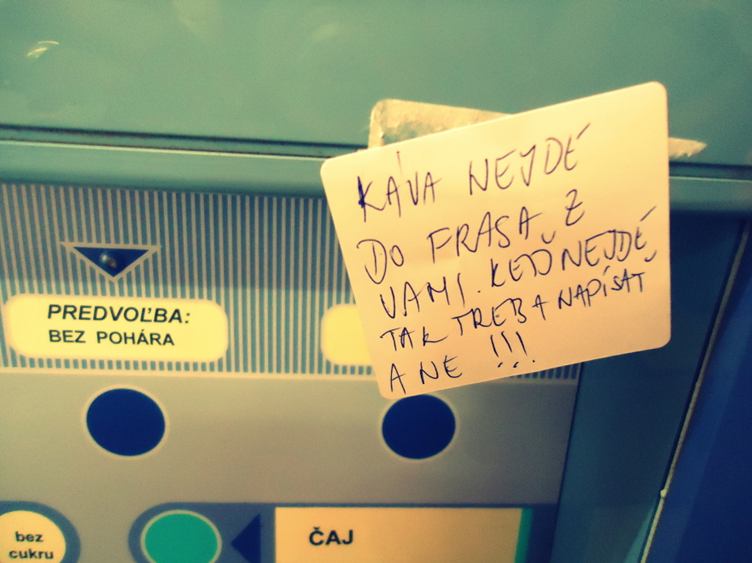 KÁVA NEJDE
DO FRASA Z
VAMI. KEĎ NEJDE,
TAK TREBA NAPÍSAŤ
A NE !!!
PREDVOĽBA:
BEZ POHÁRA
bez
cukru
ČAJ